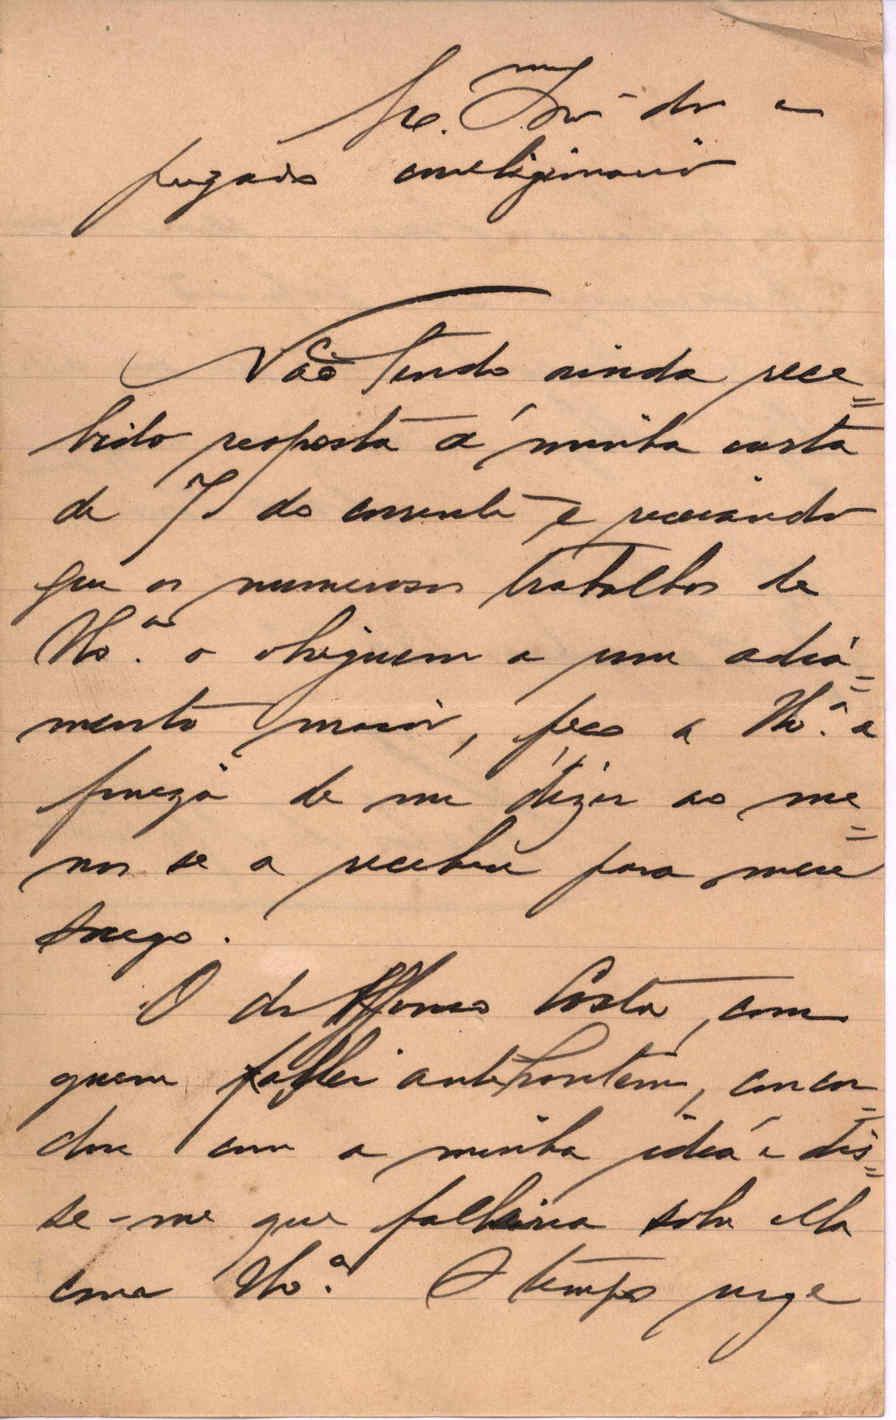 Não tendo ainda rece=
bido resposta á minha carta
de 7 do corrente e receiando
que os numerosos trabalhos de
V. Ex.ª o obriguem a um adia=
mento maior, peço a V. Ex.ª a
fineza de me dizer ao me=
nos se a recebeu para meu
socego.
O dr Affonso Costa, com
quem fallei antehontem, concor=
dou com a minha idéa e dis=
se-me que fallaria sobre ella
com V. Ex.ª O tempo urge